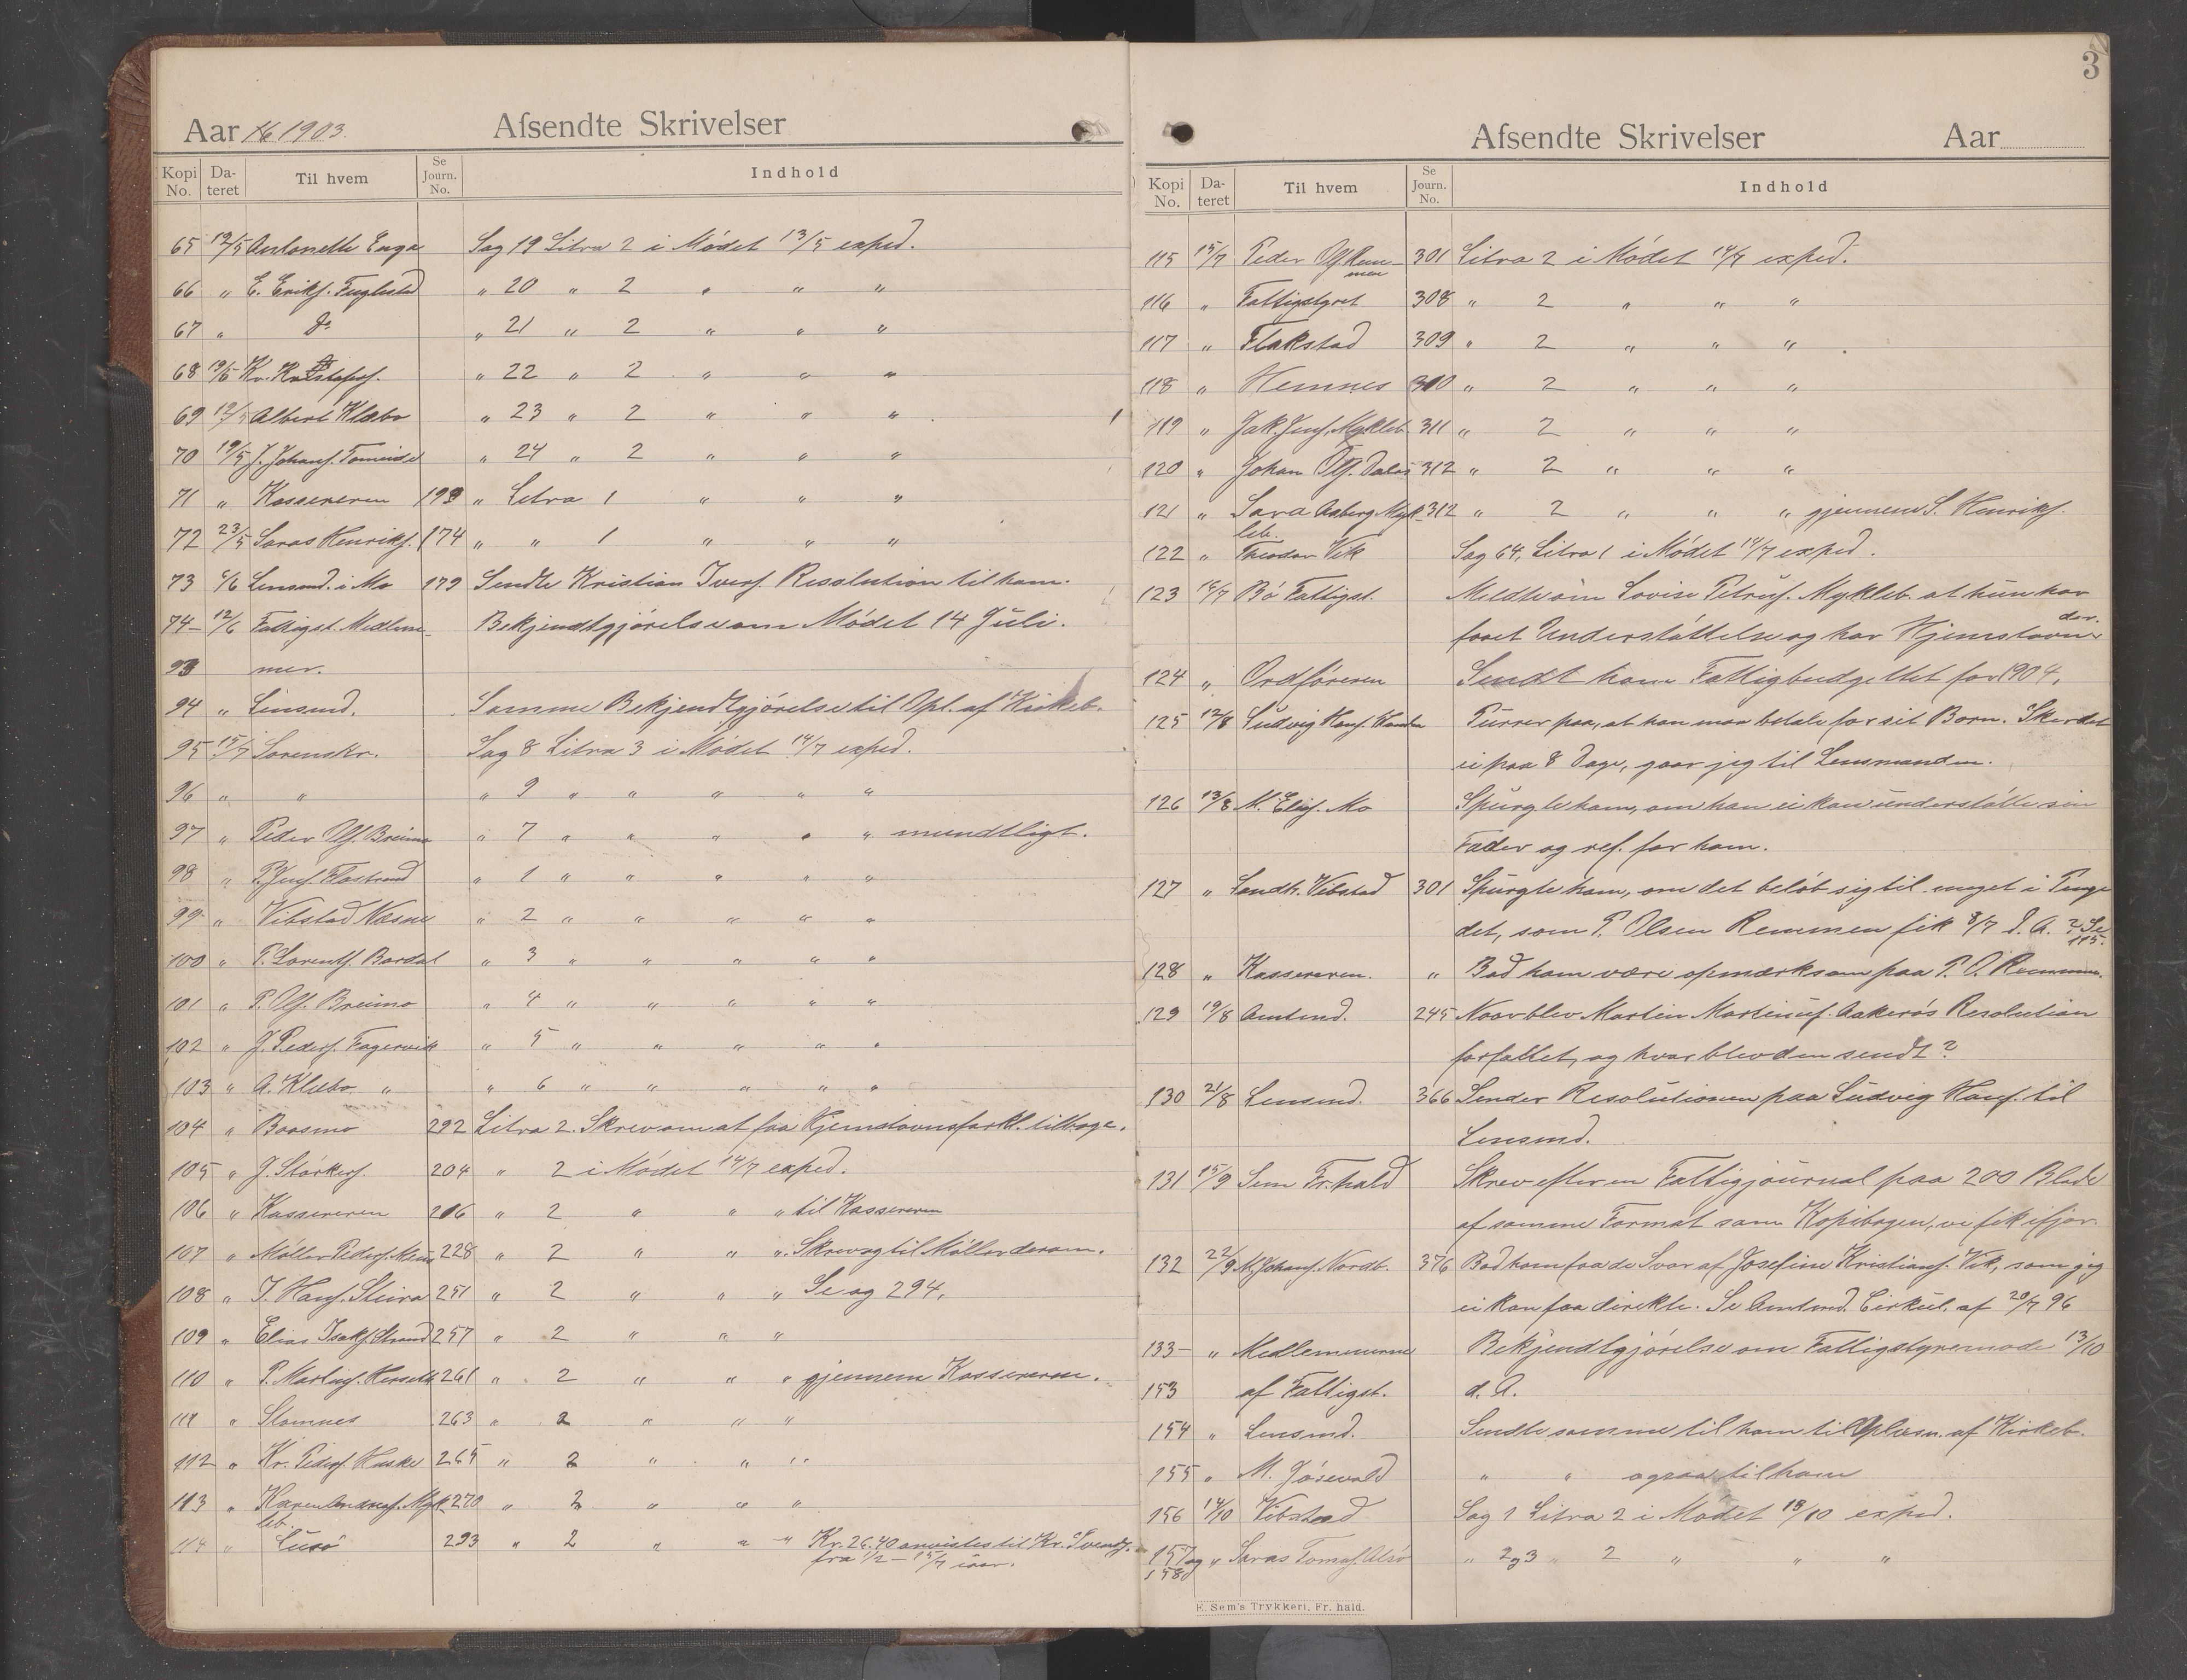 Aar 1903. Afsendte Skrivelser
Kopi No. Da-teret Til hvem Se Journ. No. Indhold
65 12/5 Antonette Enga Sag 19 Litra 2 i Mødet 13/5 exped.
66 " E. Eriks. Fuglestad " 20 " 2 " " "
67 " do " 21 " 2 " " "
68 19/5 Kr. " 22 " 2 " " "
69 12/5 Albert Klæbo " 23 " 2 " " "
70 19/5 J. Johans. " 24 " 2 " " "
71 " Kassereren 199 " Litra 1 " " "
72 23/5 Saras Henriks. 174 " " 1 " " "
73 6/6 Lensmd. i Mo 179 Sendte Kristian Ivers. Resolution til ham.
74- 12/6 Fattigst. Medlem- Bekjendtgjørelse om Mødet 14 Juli.
93 mer.
94 " Lensmd. Samme Bekjendtgjørelse til Opl. af Kirkeb.
95 15/7 Sorenskr. Sag 8 Litra 3 i Mødet 14/7 exped.
96 " " " 9 " " " " "
97 " Peder Ols. Breimo " 7 " " " " " mundtligt.
98 " P. Jens. Flostrand " 1 " " " " "
99 " Vibstad Næsne " 2 " " " " "
100 " P. Lorents. Bardal " 3 " " " " "
101 " P. Ols. Breimo " 4 " " " " "
102 " J. Peders. Fagervik " 5 " " " " "
103 " A. Klæbo " " 6 " " " " "
104 " Baasmo 292 Litra 2. Skrev om at faa Hjemstavnsforkl. tilbage.
105 " J. Størkers. 204 " 2 i Mødet 14/7 exped.
106 " Kassereren 206 " 2 " " " til Kassereren
107 " Møller Peders. 228 " 2 " " " Skrev og til Møller derom.
108 " J. Hans. Steira 251 " 2 " " " Se og 294.
109 " Elias Isaks. Strand 257 " 2 " " "
110 " P. Martins. 261 " 2 " " " gjennem Kassereren.
111 " Stamnes 263 " 2 " " "
112 " Kr. Peders. Huske 265 " 2 " " "
113 " Karen Andreas. Myk- 270 " 2 " " "
leb.
114 " Lurø 293 " 2 " " " Kr. 26.40 anvistes til Kr. Svends.
fra 1/2 - 15/7 iaar.
3
Afsendte Skrivelser Aar
Kopi No. Da-teret Til hvem Se Journ. No. Indhold
115 15/7 Peder Ols. Rem- 301 Litra 2 i Mødet 14/7 exped.
men
116 " Fattigstyret 308 " 2 " " "
117 " Flakstad 309 " 2 " " "
118 " Hemnes 310 " 2 " " "
119 " Jak. Jens. Mykleb. 311 " 2 " " "
120 " Johan Ols. Dalos 312 " 2 " " "
121 " Sara Aaberg Myk- 312 " 2 " " " gjennem S. Henriks.
leb.
122 " Theodor Vik Sag 64, Litra 1 i Mødet 14/7 exped.
123 16/7 Bø Fattigst. Meldte om Lovise Petrus. Mykleb. at hun har
faaet Understøttelse og har Hjemstavn der.
124 " Ordføreren Sendt ham Fattigbudgettet for 1904.
125 12/8 Ludvig Hans. Purrer paa, at han maa betale for sit Barn. Sker det
ei paa 8 Dage, gaar jeg til Lensmanden.
126 13/8 M. Elias. Mo Spurgte ham, om han ei kan understøtte sin
Fader og ref. for ham.
127 " Landh. Vibstad 301 Spurgte ham, om det beløb sig til meget i Penge
det, som P. Olsen Remmen fik 8/7 d. A. ? Se
115.
128 " Kassereren. " Bad ham være opmærksom paa P. O. Remmen.
129 19/8 Amtmd. 245 Naar blev Martin Martinus. Aakerøs Resolution
forfattet, og hvor blev den sendt?
130 21/8 Lensmd. 366 Sender Resolutionen paa Ludvig Hans. til
Lensmd.
131 15/9 Sem Fr.hald Skrev efter en Fattigjournal paa 200 Blade
af samme Format som Kopibogen, vi fik ifjor.
132 22/9 M. Johans. Nordt. 376 Bad ham faa de Svar af Josefine Kristians. Vik, som jeg
ei kan faa direkte. Se Amtmd. Cirkul. af 20/7 96
133- " Medlemmerne Bekjendtgjørelse om Fattigstyremøde 13/10
153 af Fattigst. d. A.
154 " Lensmd. Sendte samme til ham til Oplæsn. af Kirkeb.
155 " M. Jøsevold " " ogsaa til ham
156 14/10 Vibstad Sag 1 Litra 2 i Mødet 13/10 exped.
157 og " Saras Tomas. Alsø " 2 og 3 " 2 " " "
158
E. Sem's Trykkeri, Fr. hald.